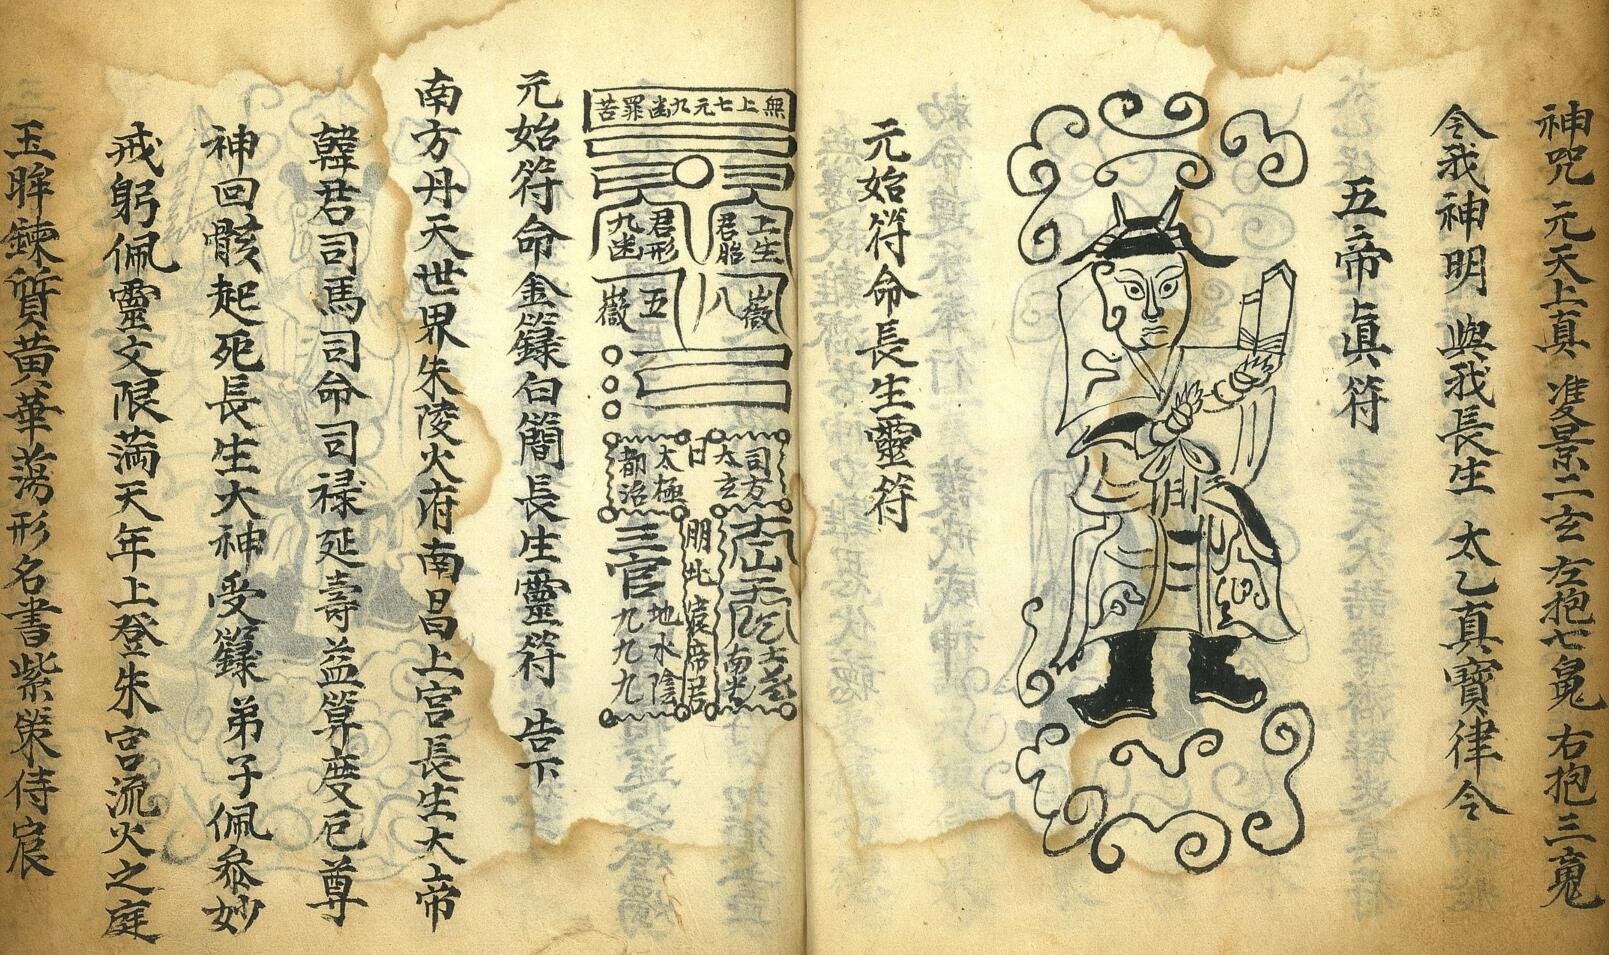 神咒 元天上真 准旻景二玄 左抱七䰟 右抱三䰟
令我神明 與我長生 太乙真寶律令
五帝眞符
元始符命長生靈符
無上七元九幽罪苦
上生君胎
君形九幽
八嶽
五嶽
司方太玄
日
太極都治
三官
地水陰
九九九
元始符命金籙白簡長生靈符 告下
南方丹天世界朱陵火府南昌上宮長生大帝
韓君司馬司命司禄延壽益算度厄尊
神回骸起死長生大神受籙 弟子佩叅妙
戒躬佩靈文限滿天年上登朱宮流火之庭
玉眸鍊質黄華蕩形名書紫策侍宸